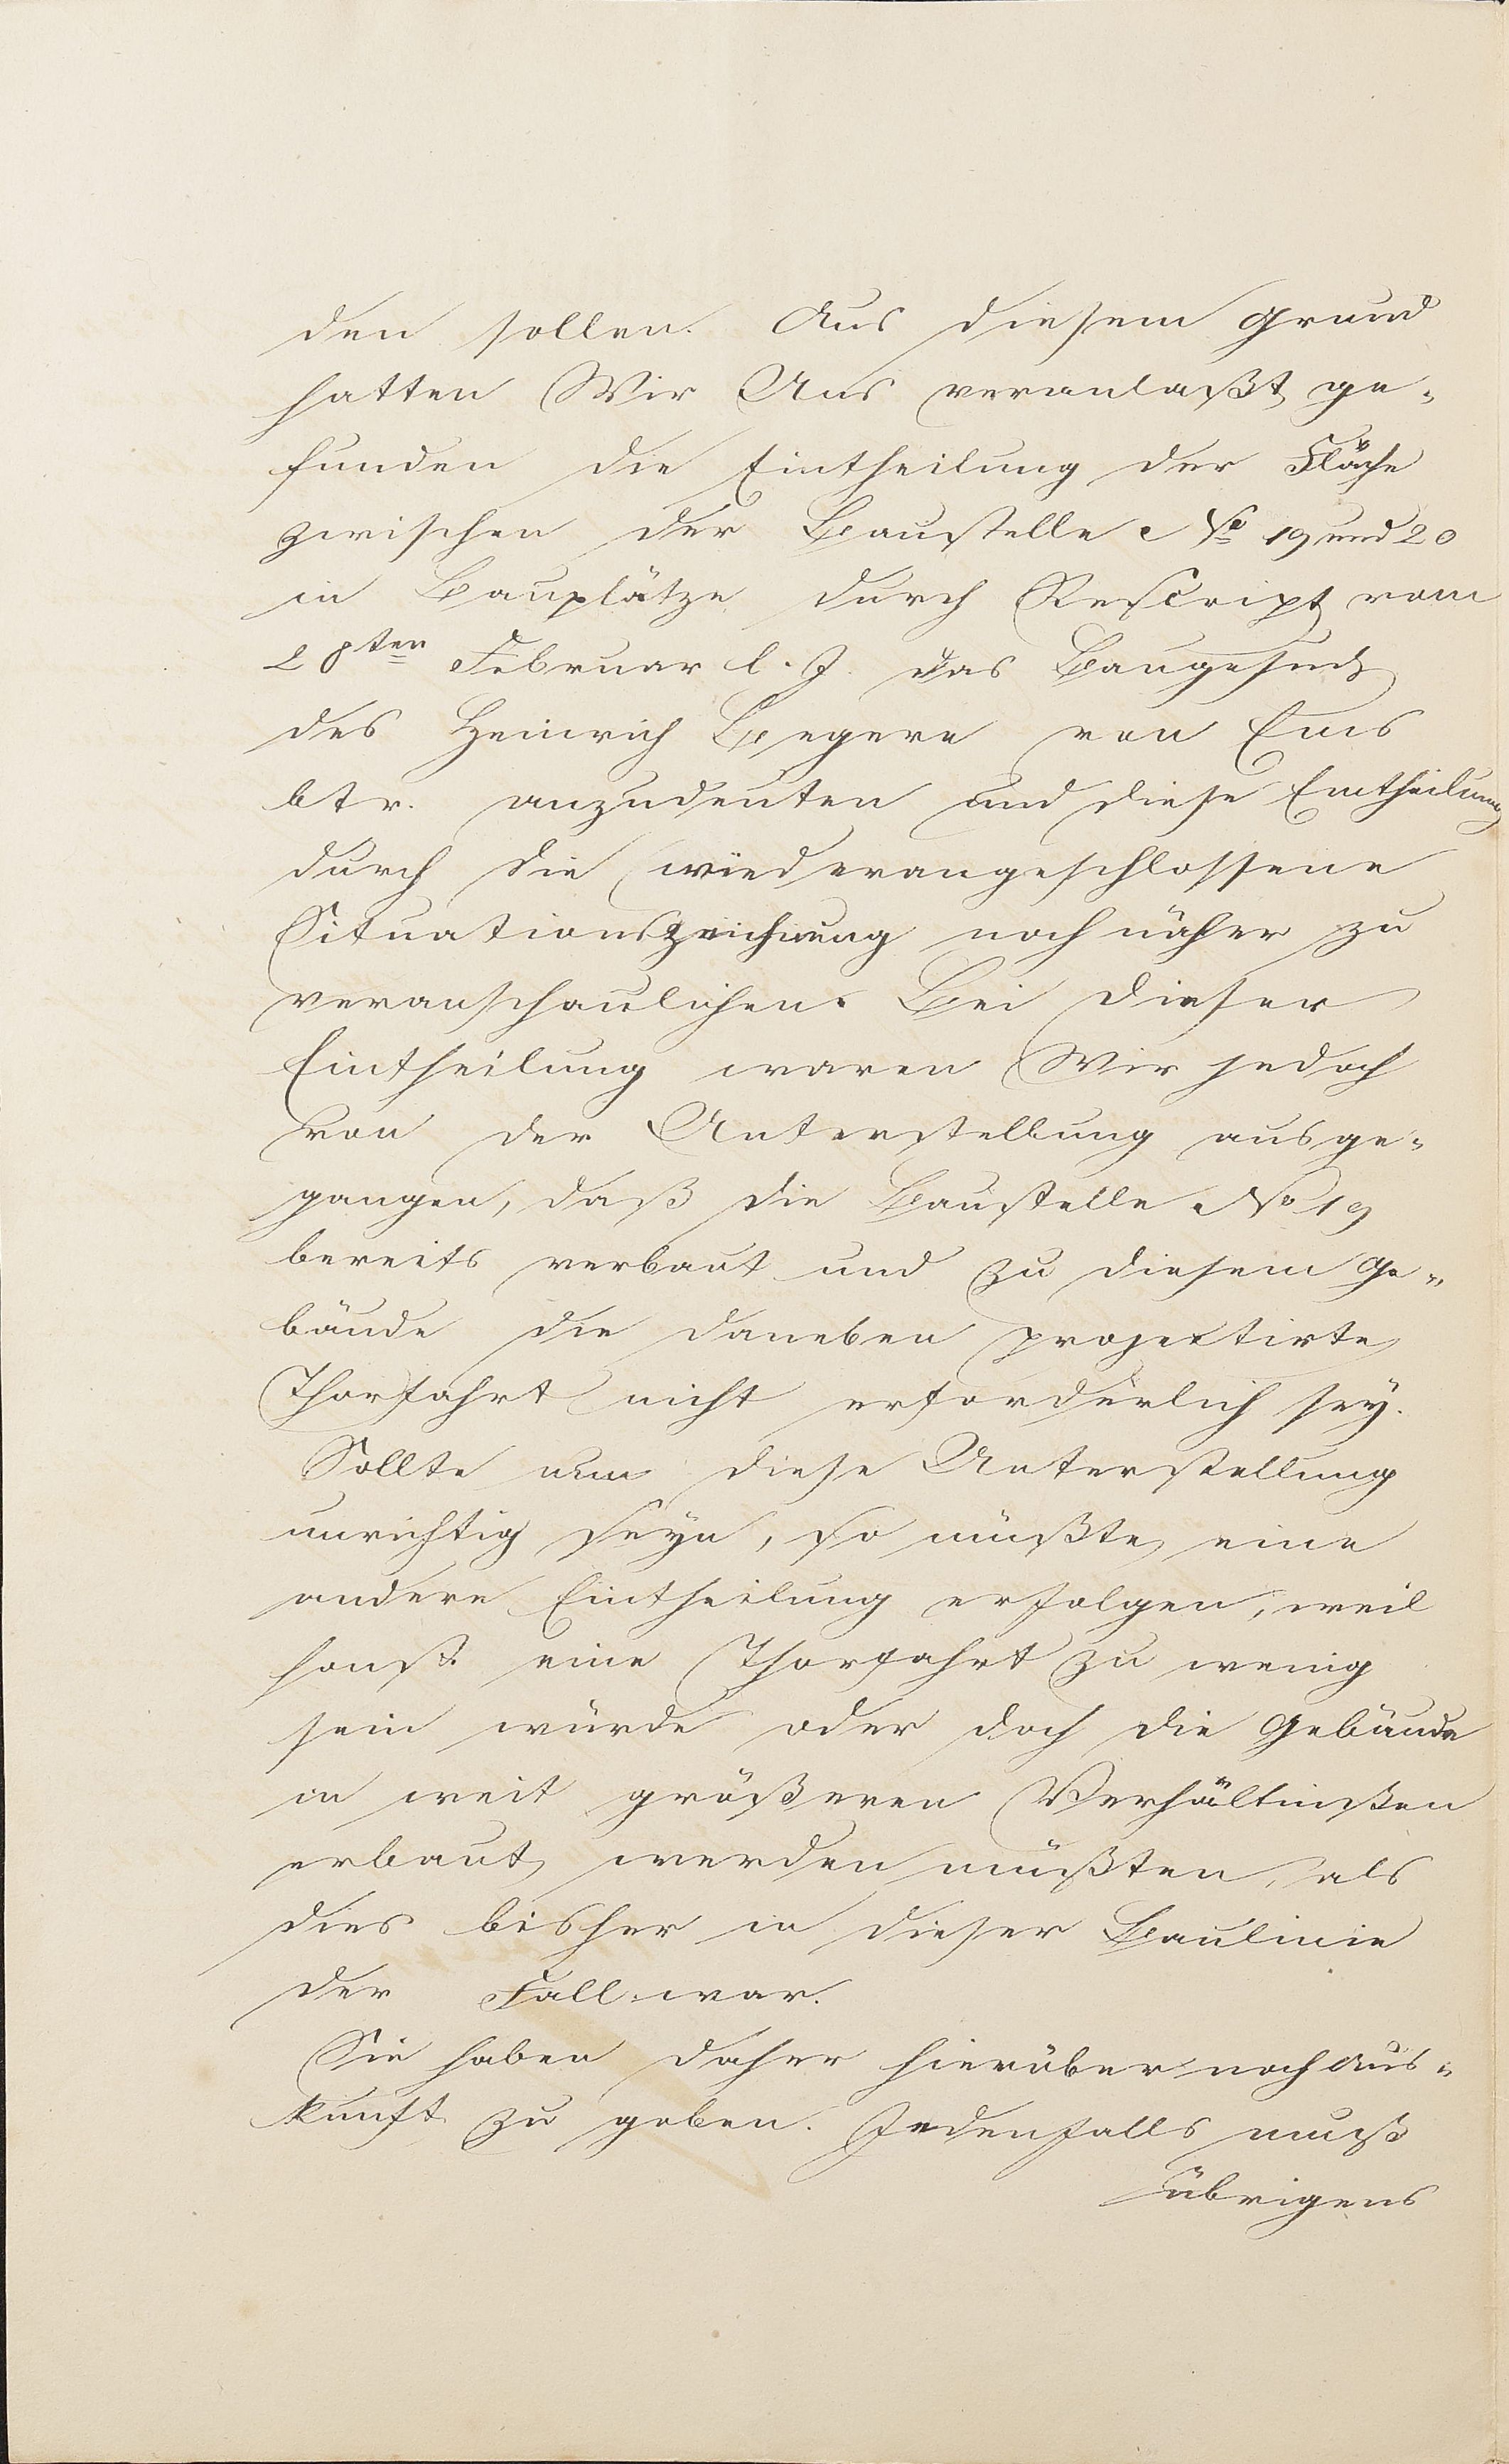 den sollen. Aus diesem Grund
hatten Wir Uns veranlaßt ge-
funden die Eintheilung der Fläche
zwischen der Baustelle No 19 und 20
in Bauplätze durch Rescript vom
28ten Februar l. J. das Baugesuch
des Heinrich Begere von Ems
btr. anzudeuten und diese Eintheilung
durch die wiederangeschlossene
Situationszeichnung noch näher zu
veranschaulichen. Bei dieser
Eintheilung waren Wir jedoch
von der Unterstellung ausge-
gangen, daß die Baustelle No 19
bereits verbaut und zu diesem Ge-
bäude die daneben projectirte
Thorfahrt nicht erforderlich sey.
Sollte nun diese Unterstellung
unrichtig seyn, so müßte eine
andere Eintheilung erfolgen, weil
sonst eine Thorfahrt zu wenig
sein würde oder doch die Gebäude
in weit größeren Verhältnißen
erbaut werden müßten, als
dies bisher in dieser Baulinie
der Fall war.
Sie haben daher hierüber noch Aus-
kunft zu geben. Jedenfalls muß
übrigens